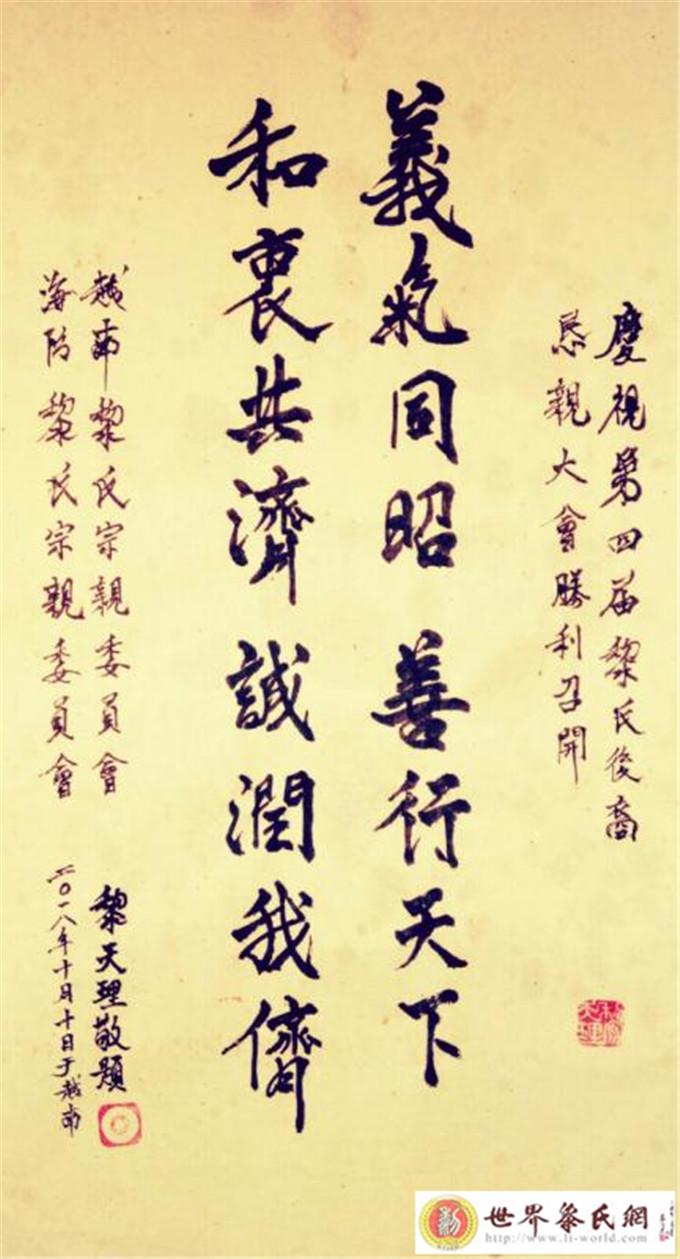 慶祝第四届黎氏後裔
懇親大會勝利召開
義氣同昭 善行天下
和衷共濟 誠潤我儕
越南黎氏宗親委員會
海防黎氏宗親委員會
黎天理敬題
二〇一八年十月十日于越南
世界黎氏網
http://www.li-world.com